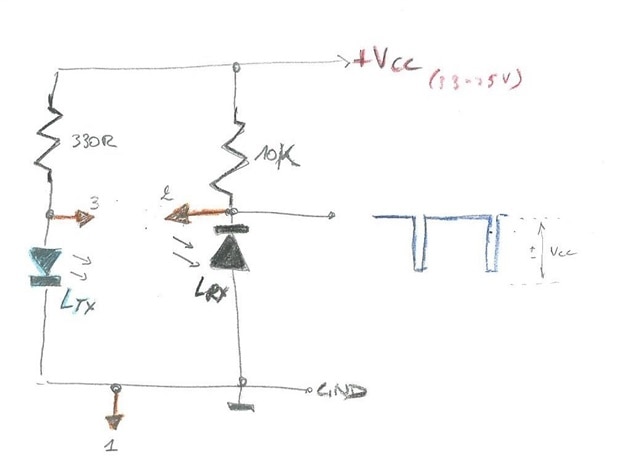 +Vcc
(3.3-25V)
330R
10K
3
2
LTX
LRX
± Vcc
GND
1